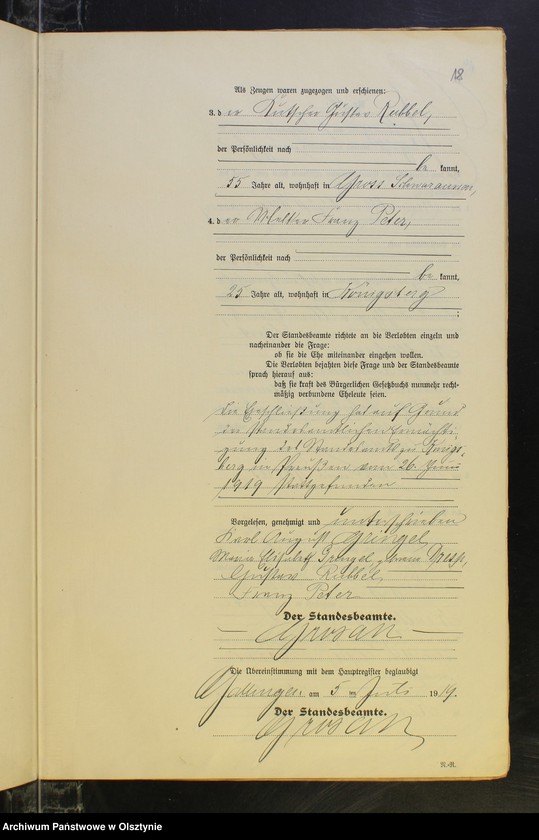 18
Als Zeugen waren zugezogen und erschienen:
3. der Kutscher Gustav Rubbel,
der Persönlichkeit nach
be kannt,
55 Jahre alt, wohnhaft in Gross
4. der Franz Peter,
der Persönlichkeit nach
be kannt,
25 Jahre alt, wohnhaft in Königsberg
;
Der Standesbeamte richtete an die Verlobten einzeln und
nacheinander die Frage:
ob sie die Ehe miteinander eingehen wollen.
Die Verlobten bejahten diese Frage und der Standesbeamte
sprach hierauf aus:
daß sie kraft des Bürgerlichen Gesetzbuchs nunmehr recht-
mäßig verbundene Eheleute seien.
Die Eheschließung hat auf Grund
der standesamtlichen Ermächti-
gung des Standesamts zu Königs-
berg in Preußen vom 26. Juni
1919 stattgefunden
Vorgelesen, genehmigt und unterschrieben
Karl August Gringel
Maria Elisabeth Gringel geborene
Gustav Rubbel,
Franz Peter
Der Standesbeamte.
Grosan
Die Übereinstimmung mit dem Hauptregister beglaubigt
am 5 ten Juli 1919.
Der Standesbeamte.
Grosan
N.-R.
Archiwum Państwowe w Olsztynie